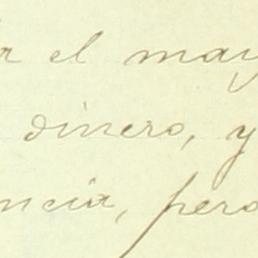 el may
dinero, y
ncia, pero